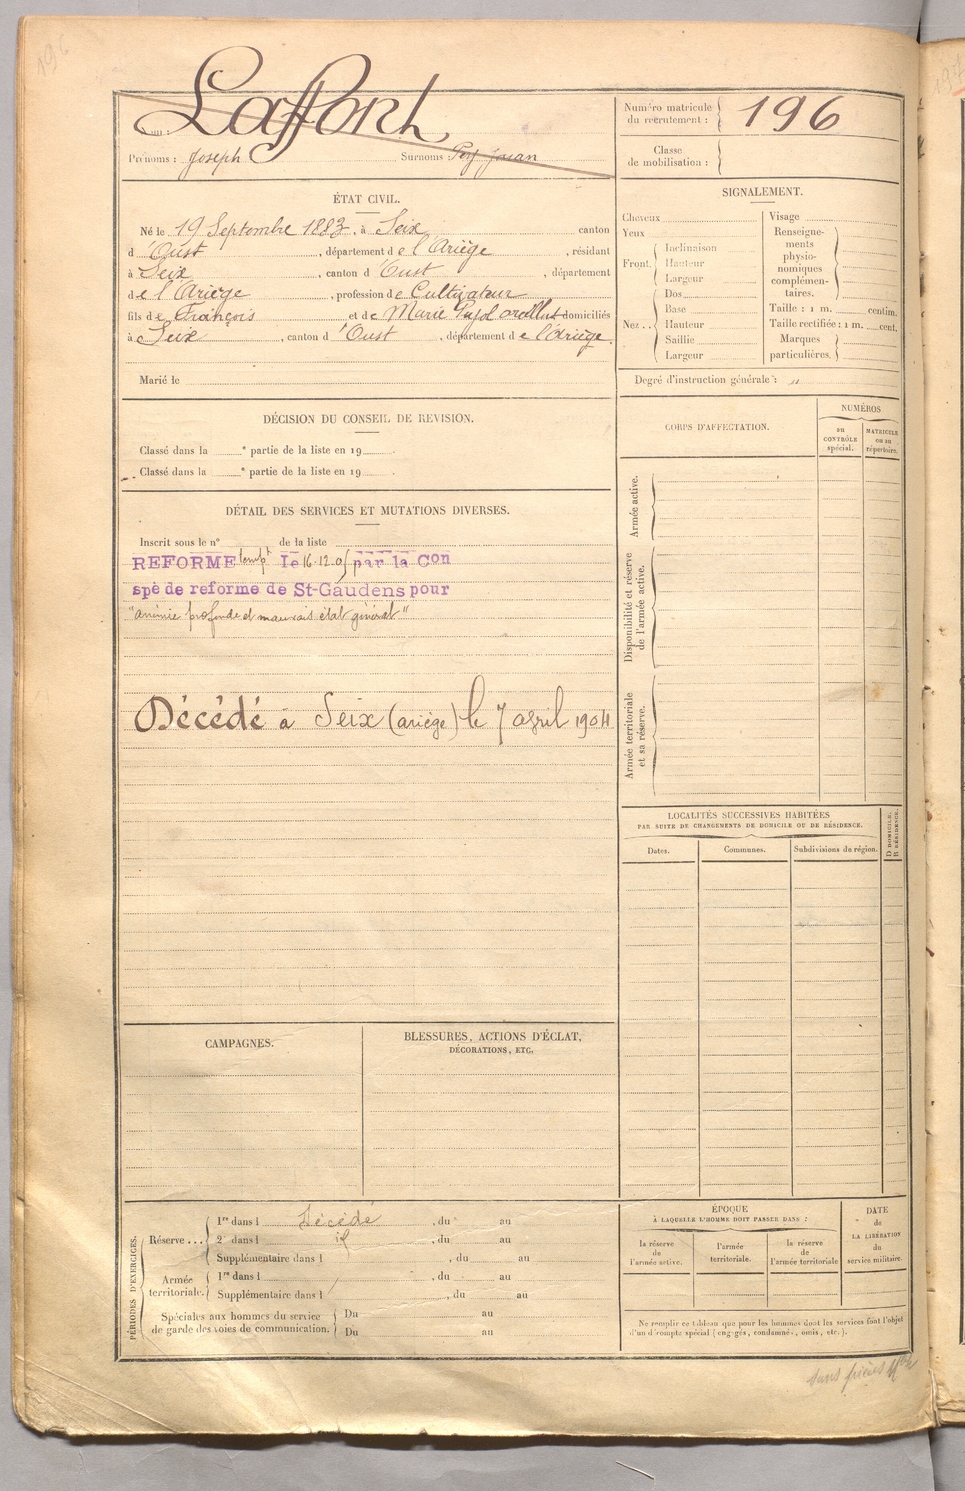 196
Nom : Laffont
Prénoms : Joseph Surnoms :
Numéro matricule du recrutement : 196
Classe de mobilisation :
ÉTAT CIVIL.
Né le 19 Septembre 1883, à Seix canton
d'Oust, département de l'Ariège, résidant
à Seix, canton d'Oust, département
de l'Ariège, profession de Cultivateur
fils de François et de Marie Pujol domiciliés
à Seix, canton d'Oust, département de l'Ariège.
Marié le
SIGNALEMENT.
Cheveux
Yeux
Front. Inclinaison
Hauteur
Largeur
Nez.. Dos
Base
Hauteur
Saillie
Largeur
Visage
Renseigne-
ments
physio-
nomiques
complémen-
taires.
Taille : 1 m. centim.
Taille rectifiée : 1 m. cent.
Marques
particulières.
Degré d'instruction générale : "
DÉCISION DU CONSEIL DE REVISION.
Classé dans la e partie de la liste en 19 .
Classé dans la e partie de la liste en 19 .
DÉTAIL DES SERVICES ET MUTATIONS DIVERSES.
Inscrit sous le n° de la liste
REFORME tempt le 16.12.05 par la Con
spé de reforme de St-Gaudens pour
"anémie profonde et mauvais état général"
Décédé à Seix (ariège) le 7 avril 1904
CORPS D'AFFECTATION.
NUMÉROS
au
CONTRÔLE
spécial.
MATRICULE
ou au
répertoire.
Armée active.
Disponibilité et réserve
de l'armée active.
Armée territoriale
et sa réserve.
LOCALITÉS SUCCESSIVES HABITÉES
PAR SUITE DE CHANGEMENTS DE DOMICILE OU DE RÉSIDENCE.
Dates.
Communes.
Subdivisions de région.
D DOMICILE.
R RÉSIDENCE.
CAMPAGNES.
BLESSURES, ACTIONS D'ÉCLAT,
DÉCORATIONS, ETC.
PÉRIODES D'EXERCICES.
Réserve... 1re dans l Décédé, du au
2e dans l id, du au
Supplémentaire dans l , du au
Armée territoriale. 1re dans l , du au
Supplémentaire dans l , du au
Spéciales aux hommes du service Du au
de garde des voies de communication. Du au
ÉPOQUE
À LAQUELLE L'HOMME DOIT PASSER DANS :
la réserve
de
l'armée active.
l'armée
territoriale.
la réserve
de
l'armée territoriale
DATE
de
LA LIBÉRATION
du
service militaire.
Ne remplir ce tableau que pour les hommes dont les services font l'objet
d'un décompte spécial (engagés, condamnés, omis, etc.).
sans pièces